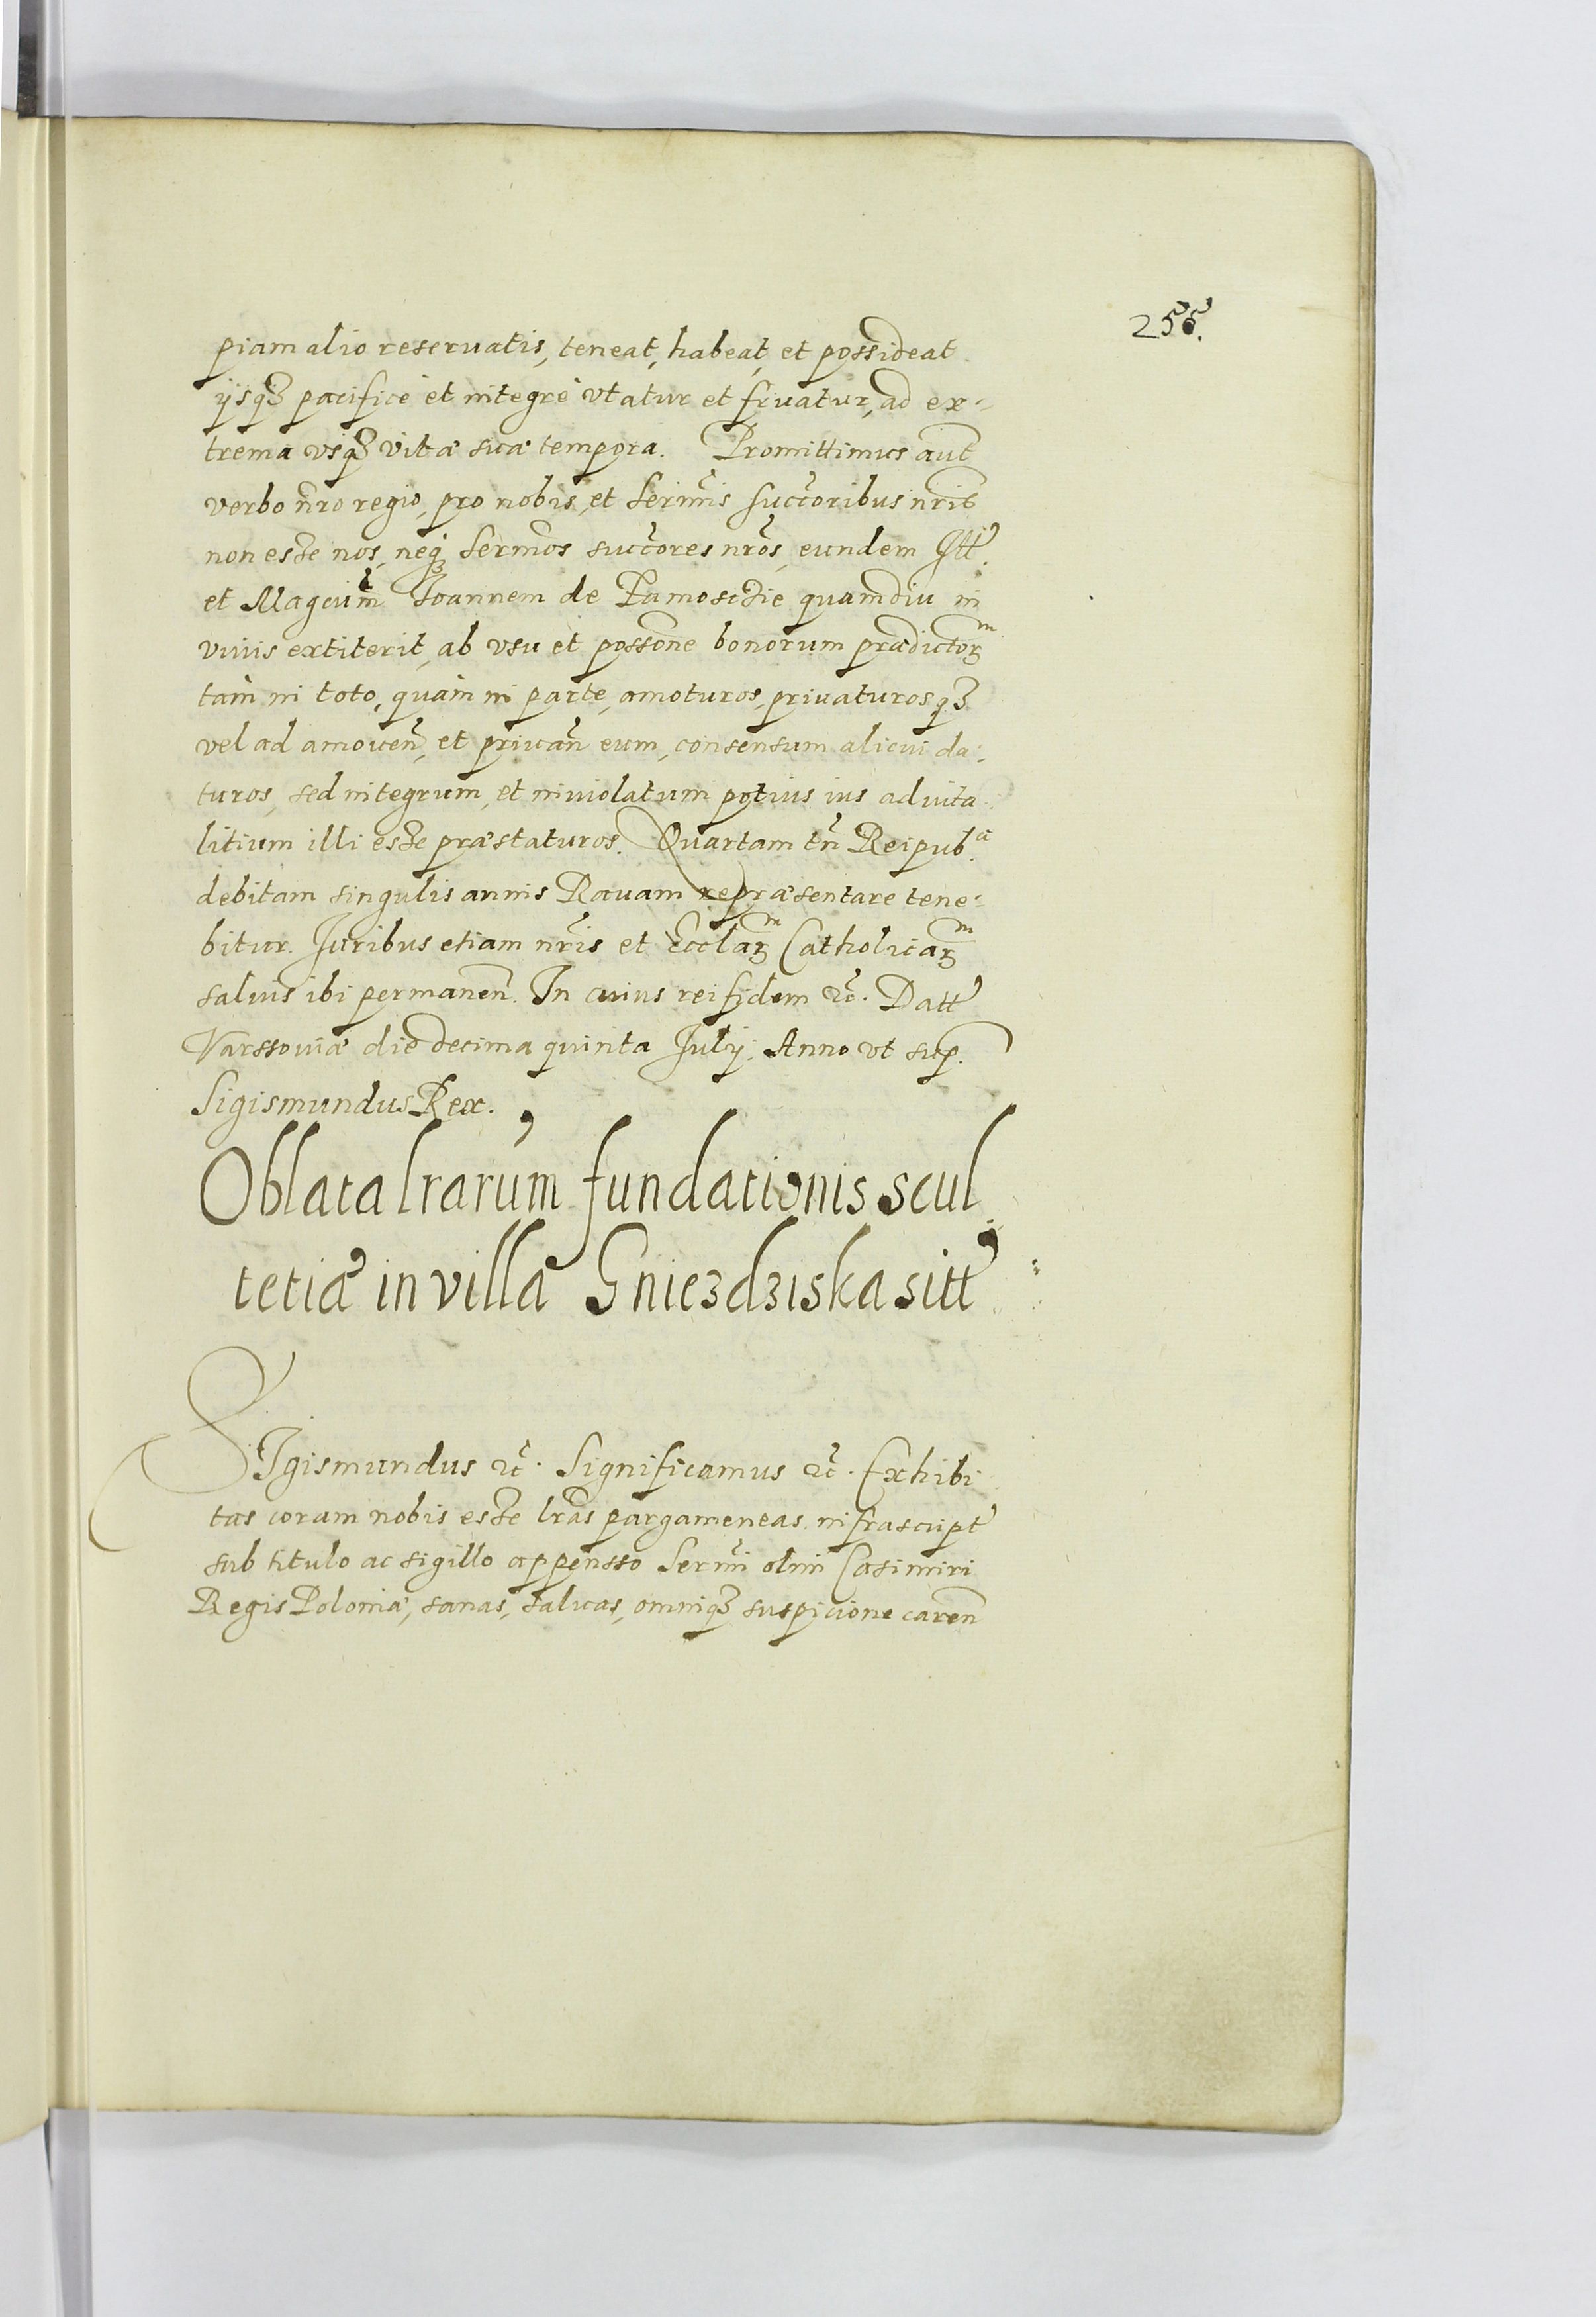 255.
piam alio reseruatis, teneat, habeat, et possideat
ijsq3 pacificè et integrè vtatur et fruatur, ad ex-
trema vsq3 vitæ suæ tempora. Promittimus aut̃
verbo nr̃o regio, pro nobis, et Serm̃is succ̃oribus nr̃is
non esse nos, neq3 Serm̃os succ̃ores nr̃os, eundem Ill̃
et Magcum̃ Joannem de Zamoscie quamdiu in
viuis extiterit, ab vsu et possone bonorum prædictorꝫᵐ
tàm in toto, quàm in parte, amoturos, priuaturosq3
vel ad amouen̄, et priuan̄ eum, consensum alicui da-
turos, sed integrum, et inuiolatum potius ius aduita-
litium illi esse præstaturos. Quartam tn̄ Reipub.ᵃ
debitam singulis annis Rauam repræsentare tene-
bitur. Juribus etiam nr̃is et Ecclarꝫᵐ Catholicarꝫᵐ
saluis ibi permanen̄. In cuius rei fidem ꝛc̃. Datt̃
Varssouiæ die decima quinta Julij. Anno vt sup.
Sigismundus Rex.
Oblata lrarum fundationis scul
tetiæ in villa Gniezdziska sitt̃
SIgismundus ꝛc̃. Significamus ꝛc̃. Exhibi
tas coram nobis esse lr̃as pargameneas infrascript̃
sub titulo ac sigillo appensso Serm̃i olim Casimiri
Regis Poloniæ, sanas, saluas, omniq3 suspicione caren̄